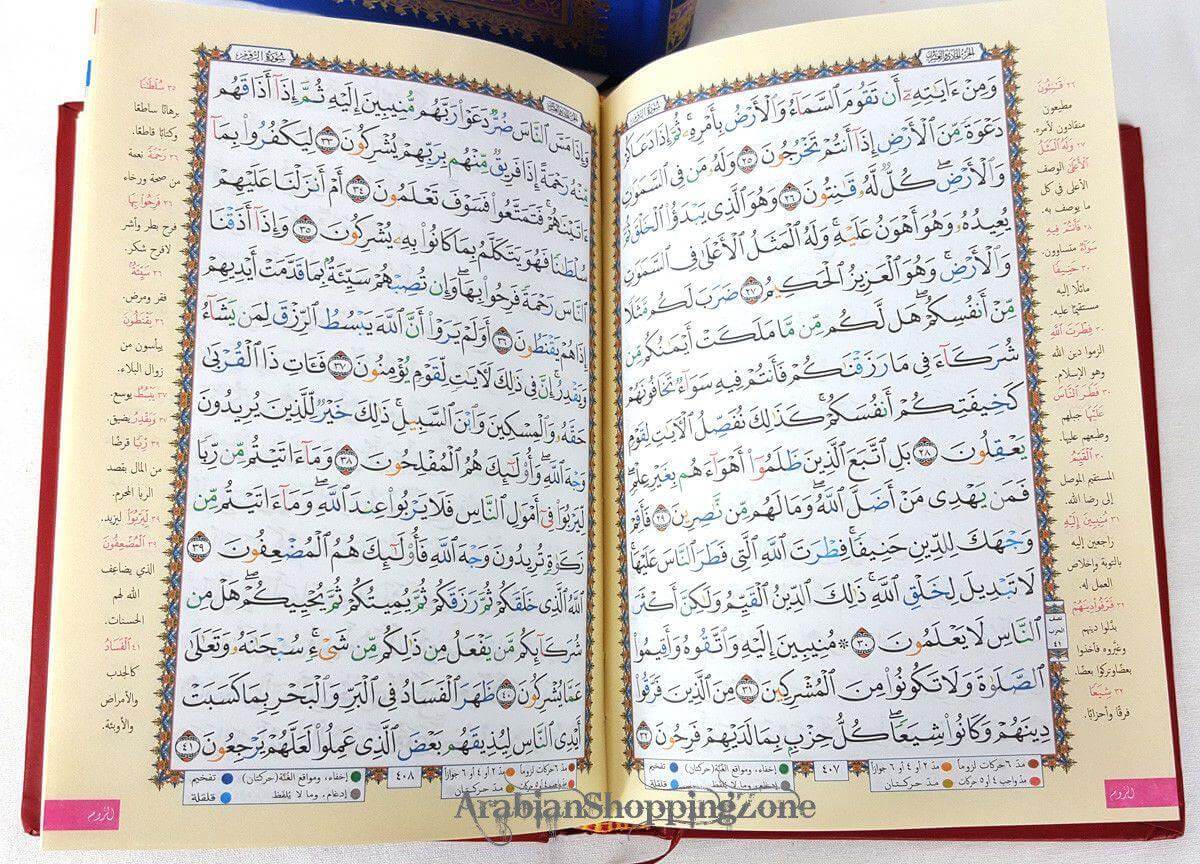 الجزء الحادي والعشرون
سورة الروم
وَمِنْ ءَايَـٰتِهِۦٓ أَن تَقُومَ ٱلسَّمَآءُ وَٱلْأَرْضُ بِأَمْرِهِۦ ۚ ثُمَّ إِذَا دَعَاكُمْ
دَعْوَةً مِّنَ ٱلْأَرْضِ إِذَآ أَنتُمْ تَخْرُجُونَ ٢٥ وَلَهُۥ مَن فِى ٱلسَّمَـٰوَٰتِ
وَٱلْأَرْضِ ۖ كُلٌّ لَّهُۥ قَـٰنِتُونَ ٢٦ وَهُوَ ٱلَّذِى يَبْدَؤُا۟ ٱلْخَلْقَ ثُمَّ
يُعِيدُهُۥ وَهُوَ أَهْوَنُ عَلَيْهِ ۚ وَلَهُ ٱلْمَثَلُ ٱلْأَعْلَىٰ فِى ٱلسَّمَـٰوَٰتِ
وَٱلْأَرْضِ ۚ وَهُوَ ٱلْعَزِيزُ ٱلْحَكِيمُ ٢٧ ضَرَبَ لَكُم مَّثَلًا
مِّنْ أَنفُسِكُمْ ۖ هَل لَّكُم مِّن مَّا مَلَكَتْ أَيْمَـٰنُكُم مِّن
شُرَكَآءَ فِى مَا رَزَقْنَـٰكُمْ فَأَنتُمْ فِيهِ سَوَآءٌ تَخَافُونَهُمْ
كَخِيفَتِكُمْ أَنفُسَكُمْ ۚ كَذَٰلِكَ نُفَصِّلُ ٱلْـَٔايَـٰتِ لِقَوْمٍ
يَعْقِلُونَ ٢٨ بَلِ ٱتَّبَعَ ٱلَّذِينَ ظَلَمُوٓا۟ أَهْوَآءَهُم بِغَيْرِ عِلْمٍ ۖ
فَمَن يَهْدِى مَنْ أَضَلَّ ٱللَّهُ ۖ وَمَا لَهُم مِّن نَّـٰصِرِينَ ٢٩ فَأَقِمْ
وَجْهَكَ لِلدِّينِ حَنِيفًا ۚ فِطْرَتَ ٱللَّهِ ٱلَّتِى فَطَرَ ٱلنَّاسَ عَلَيْهَا ۚ
لَا تَبْدِيلَ لِخَلْقِ ٱللَّهِ ۚ ذَٰلِكَ ٱلدِّينُ ٱلْقَيِّمُ وَلَـٰكِنَّ أَكْثَرَ
ٱلنَّاسِ لَا يَعْلَمُونَ ٣٠ ۞ مُنِيبِينَ إِلَيْهِ وَٱتَّقُوهُ وَأَقِيمُوا۟
ٱلصَّلَوٰةَ وَلَا تَكُونُوا۟ مِنَ ٱلْمُشْرِكِينَ ٣١ مِنَ ٱلَّذِينَ فَرَّقُوا۟
دِينَهُمْ وَكَانُوا۟ شِيَعًا ۖ كُلُّ حِزْبٍۭ بِمَا لَدَيْهِمْ فَرِحُونَ ٣٢
٢٦ قَـٰنِتُونَ
مطيعون
منقادون لأمره.
٢٧ وَلَهُ ٱلْمَثَلُ
ٱلْأَعْلَىٰ الوصف
الأعلى في كل
ما يوصف به.
٢٨ فَأَنتُمْ فِيهِ
سَوَآءٌ متساوون.
٣٠ حَنِيفًا
مائلًا إليه
مستقيمًا عليه.
٣٠ فِطْرَتَ ٱللَّهِ
الزموا دين الله
وهو الإسلام.
٣٠ فَطَرَ ٱلنَّاسَ
عَلَيْهَا جبلهم
وطبعهم عليها.
٣٠ ٱلْقَيِّمُ
المستقيم الموصل
إلى رضا الله.
٣١ مُنِيبِينَ إِلَيْهِ
راجعين إليه
بالتوبة وإخلاص
العمل له.
٣٢ فَرَّقُوا۟ دِينَهُمْ
بدّلوا دينهم
وغيّروه فأخذوا
بعضًا وتركوا بعضًا.
٣٢ شِيَعًا
فرقًا وأحزابًا.
نصف
الحزب
٤١
مدّ ٦ حركات لزومًا مدّ ٢ أو ٤ أو ٦ جوازًا
مدّ واجب ٤ أو ٥ حركات مدّ حركتان
٤٠٧
إخفاء، ومواقع الغُنَّة (حركتان) تفخيم
إدغام، وما لا يُلفظ قلقلة
الرّوم
سورة الروم
الجزء الحادي والعشرون
وَإِذَا مَسَّ ٱلنَّاسَ ضُرٌّ دَعَوْا۟ رَبَّهُم مُّنِيبِينَ إِلَيْهِ ثُمَّ إِذَآ أَذَاقَهُم
مِّنْهُ رَحْمَةً إِذَا فَرِيقٌ مِّنْهُم بِرَبِّهِمْ يُشْرِكُونَ ٣٣ لِيَكْفُرُوا۟ بِمَآ
ءَاتَيْنَـٰهُمْ ۚ فَتَمَتَّعُوا۟ فَسَوْفَ تَعْلَمُونَ ٣٤ أَمْ أَنزَلْنَا عَلَيْهِمْ
سُلْطَـٰنًا فَهُوَ يَتَكَلَّمُ بِمَا كَانُوا۟ بِهِۦ يُشْرِكُونَ ٣٥ وَإِذَآ أَذَقْنَا
ٱلنَّاسَ رَحْمَةً فَرِحُوا۟ بِهَا ۖ وَإِن تُصِبْهُمْ سَيِّئَةٌۢ بِمَا قَدَّمَتْ أَيْدِيهِمْ
إِذَا هُمْ يَقْنَطُونَ ٣٦ أَوَلَمْ يَرَوْا۟ أَنَّ ٱللَّهَ يَبْسُطُ ٱلرِّزْقَ لِمَن يَشَآءُ
وَيَقْدِرُ ۚ إِنَّ فِى ذَٰلِكَ لَـَٔايَـٰتٍ لِّقَوْمٍ يُؤْمِنُونَ ٣٧ فَـَٔاتِ ذَا ٱلْقُرْبَىٰ
حَقَّهُۥ وَٱلْمِسْكِينَ وَٱبْنَ ٱلسَّبِيلِ ۚ ذَٰلِكَ خَيْرٌ لِّلَّذِينَ يُرِيدُونَ
وَجْهَ ٱللَّهِ ۖ وَأُو۟لَـٰٓئِكَ هُمُ ٱلْمُفْلِحُونَ ٣٨ وَمَآ ءَاتَيْتُم مِّن رِّبًا
لِّيَرْبُوَا۟ فِىٓ أَمْوَٰلِ ٱلنَّاسِ فَلَا يَرْبُوا۟ عِندَ ٱللَّهِ ۖ وَمَآ ءَاتَيْتُم مِّن
زَكَوٰةٍ تُرِيدُونَ وَجْهَ ٱللَّهِ فَأُو۟لَـٰٓئِكَ هُمُ ٱلْمُضْعِفُونَ ٣٩
ٱللَّهُ ٱلَّذِى خَلَقَكُمْ ثُمَّ رَزَقَكُمْ ثُمَّ يُمِيتُكُمْ ثُمَّ يُحْيِيكُمْ ۖ هَلْ مِن
شُرَكَآئِكُم مَّن يَفْعَلُ مِن ذَٰلِكُم مِّن شَىْءٍ ۚ سُبْحَـٰنَهُۥ وَتَعَـٰلَىٰ
عَمَّا يُشْرِكُونَ ٤٠ ظَهَرَ ٱلْفَسَادُ فِى ٱلْبَرِّ وَٱلْبَحْرِ بِمَا كَسَبَتْ
أَيْدِى ٱلنَّاسِ لِيُذِيقَهُم بَعْضَ ٱلَّذِى عَمِلُوا۟ لَعَلَّهُمْ يَرْجِعُونَ ٤١
٣٥ سُلْطَـٰنًا
برهانًا ساطعًا
وكتابًا قاطعًا.
٣٦ رَحْمَةً نعمة
من صحة ورخاء
٣٦ فَرِحُوا۟ بِهَا
فرح بطر وأشر
لا فرح شكر.
٣٦ سَيِّئَةٌ
فقر ومرض.
٣٦ يَقْنَطُونَ
ييأسون من
زوال البلاء.
٣٧ يَبْسُطُ يوسع.
٣٧ وَيَقْدِرُ يضيق.
٣٩ رِّبًا قرضًا
من المال بقصد
الربا المحرم.
٣٩ لِّيَرْبُوَا۟ ليزيد.
٣٩ ٱلْمُضْعِفُونَ
الذي يضاعِف
الله لهم
الحسنات.
٤١ ٱلْفَسَادُ
كالجدب
والأمراض
والأوبئة.
مدّ ٦ حركات لزومًا مدّ ٢ أو ٤ أو ٦ جوازًا
مدّ واجب ٤ أو ٥ حركات مدّ حركتان
٤٠٨
إخفاء، ومواقع الغُنَّة (حركتان) تفخيم
إدغام، وما لا يُلفظ قلقلة
الرّوم
ArabianShoppingZone